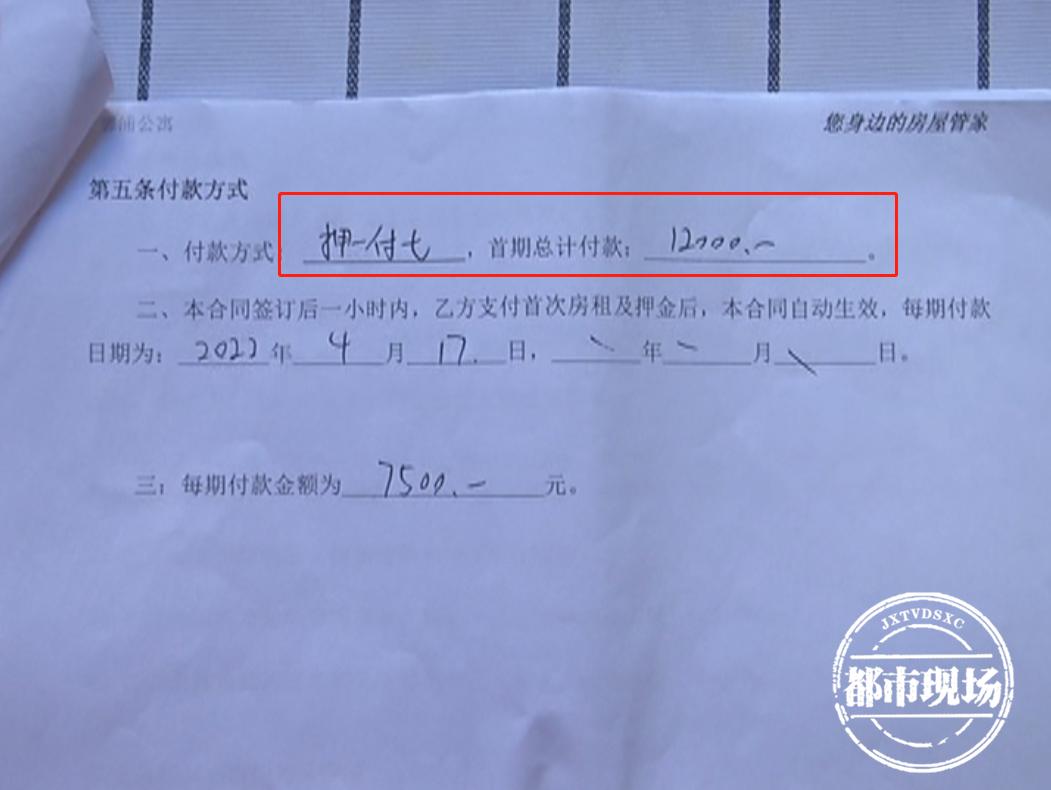 浦公寓
您身边的房屋管家
第五条付款方式
一、付款方式: 押一付七，首期总计付款: 12000.-。
二、本合同签订后一小时内，乙方支付首次房租及押金后，本合同自动生效，每期付款
日期为: 2022年4月17.日，\年\月\日。
三: 每期付款金额为7500.-元。
JXTVDSXC
都市现场